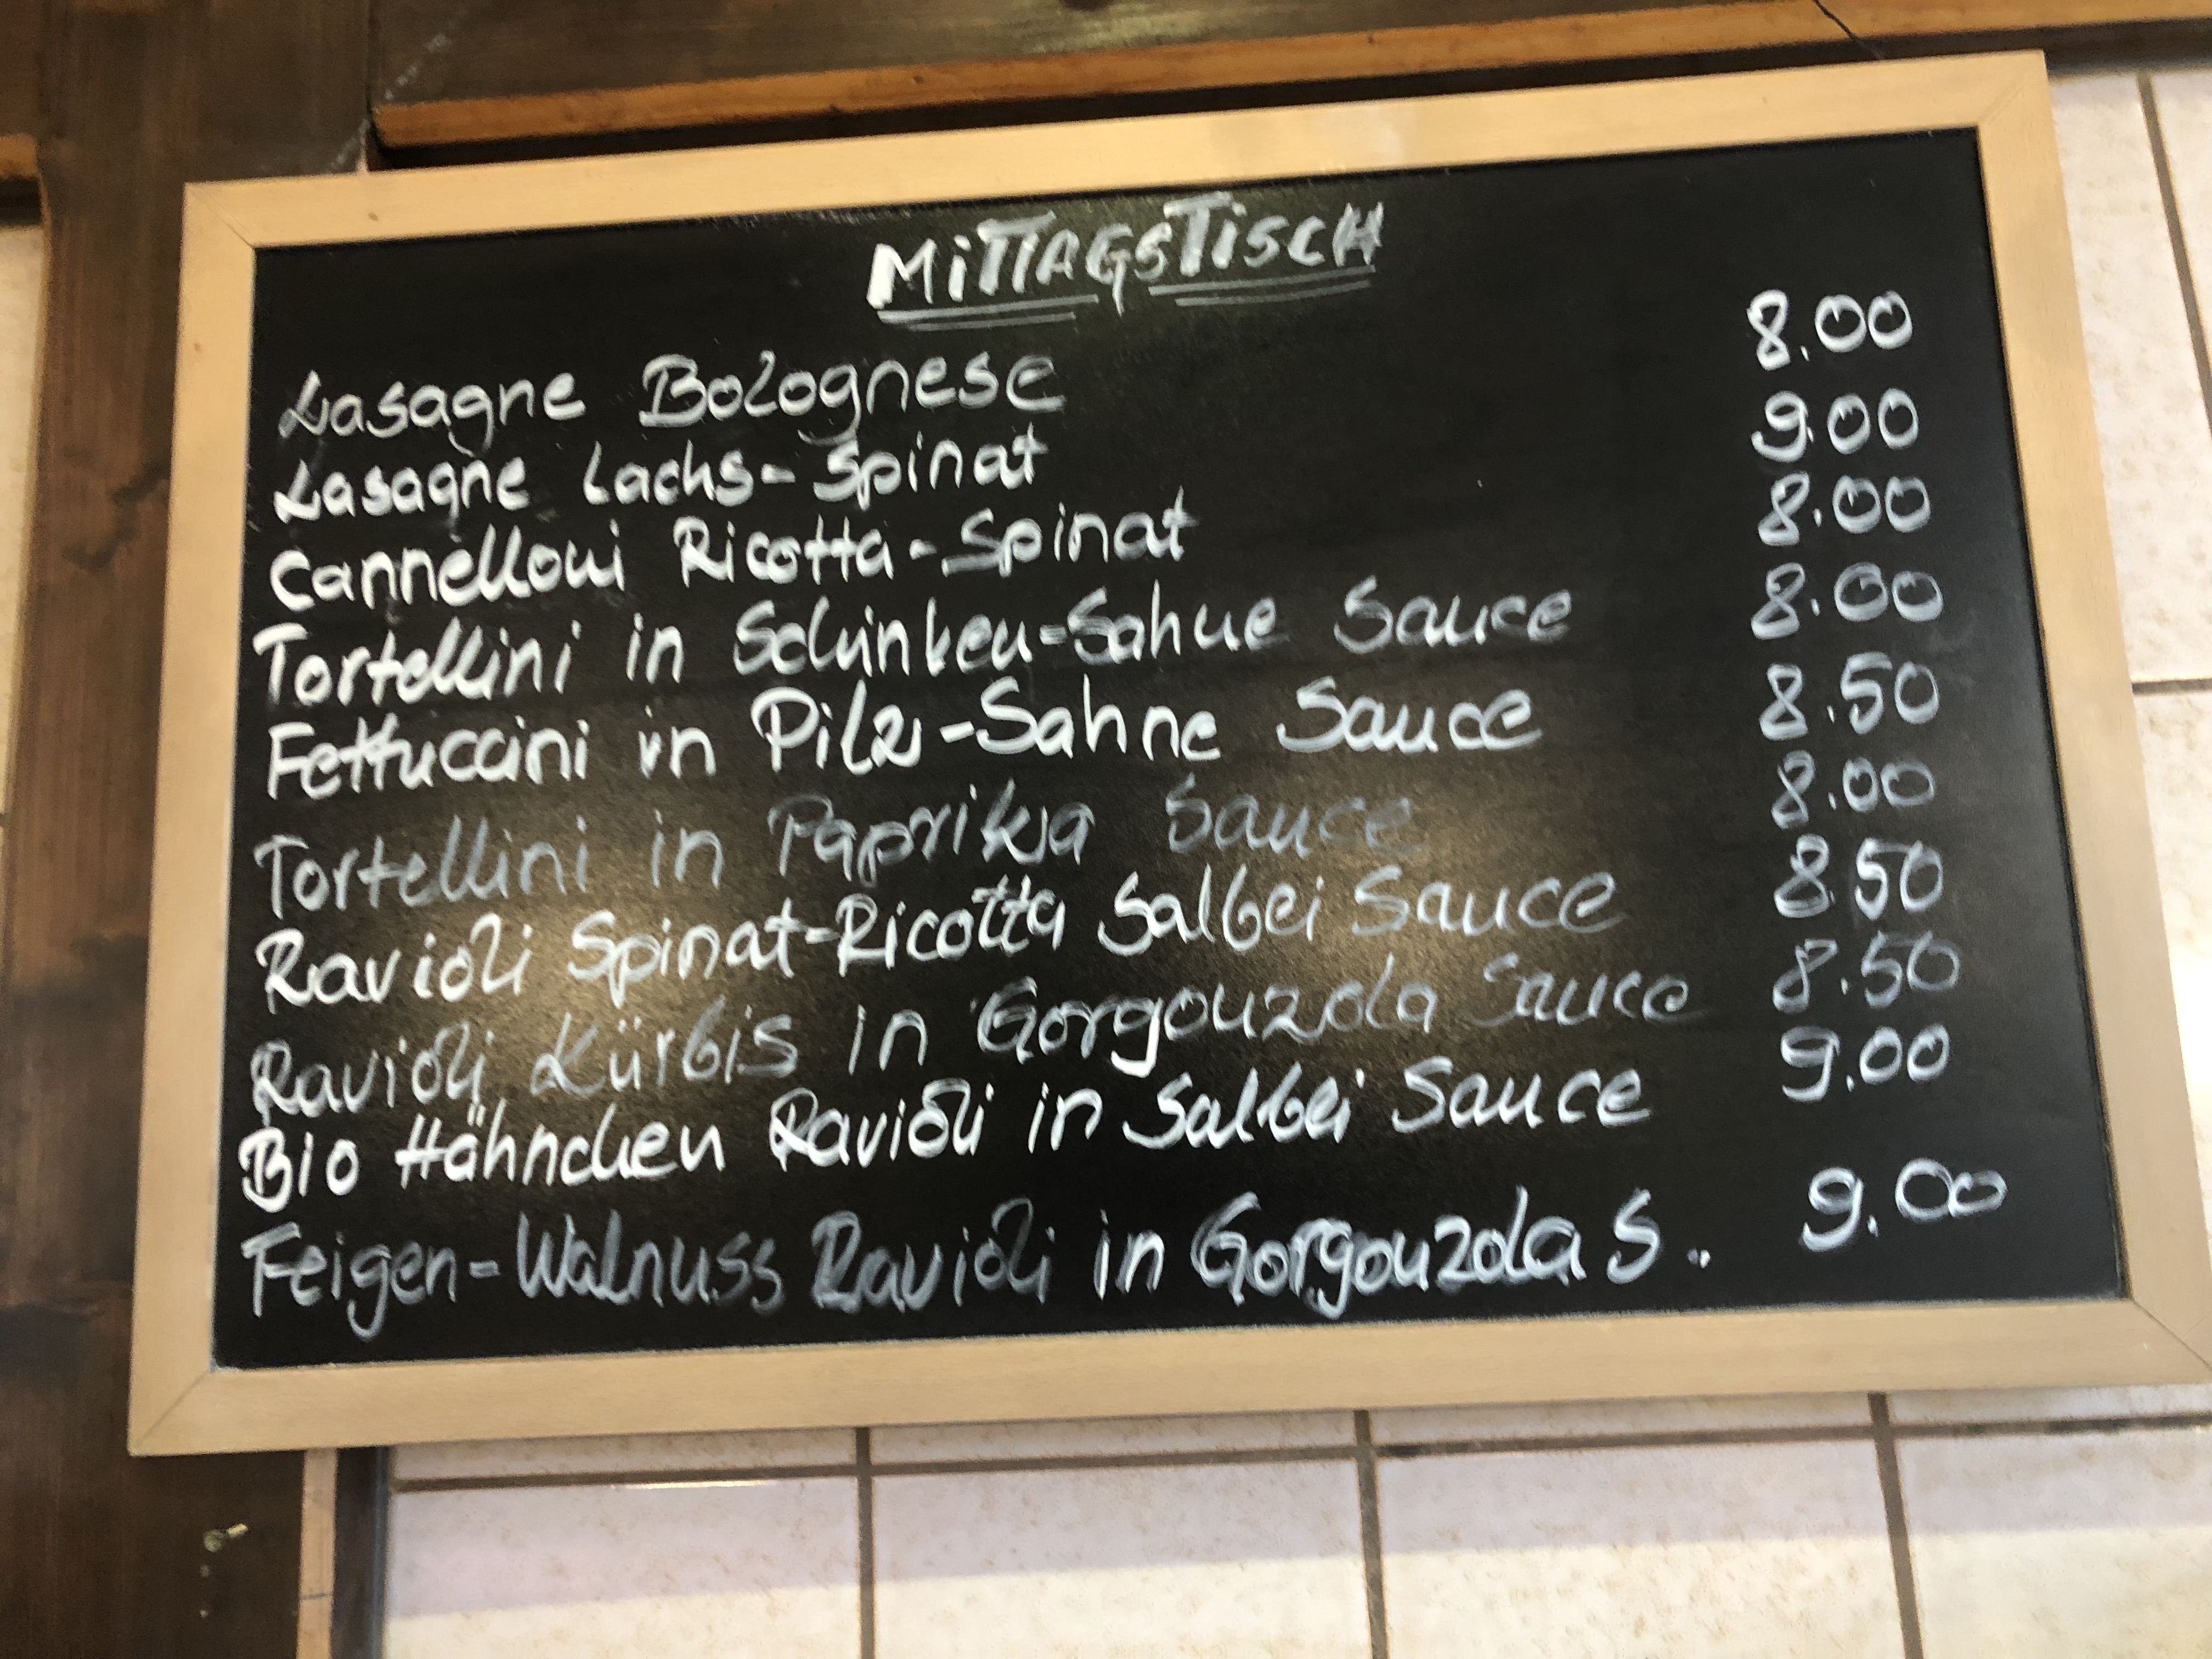 MiTTAGSTiSCH
Lasagne Bolognese 8.00
Lasagne Lachs-Spinat 9.00
Cannelloni Ricotta-Spinat 8.00
Tortellini in Schinken-Sahne Sauce 8.00
Fettuccini in Pilz-Sahne Sauce 8.50
Tortellini in Paprika Sauce 8.00
Ravioli Spinat-Ricotta Salbei Sauce 8.50
Ravioli Kürbis in Gorgonzola Sauce 8.50
Bio Hähnchen Ravioli in Salbei Sauce 9.00
Feigen-Walnuss Ravioli in Gorgonzola S. 9.00